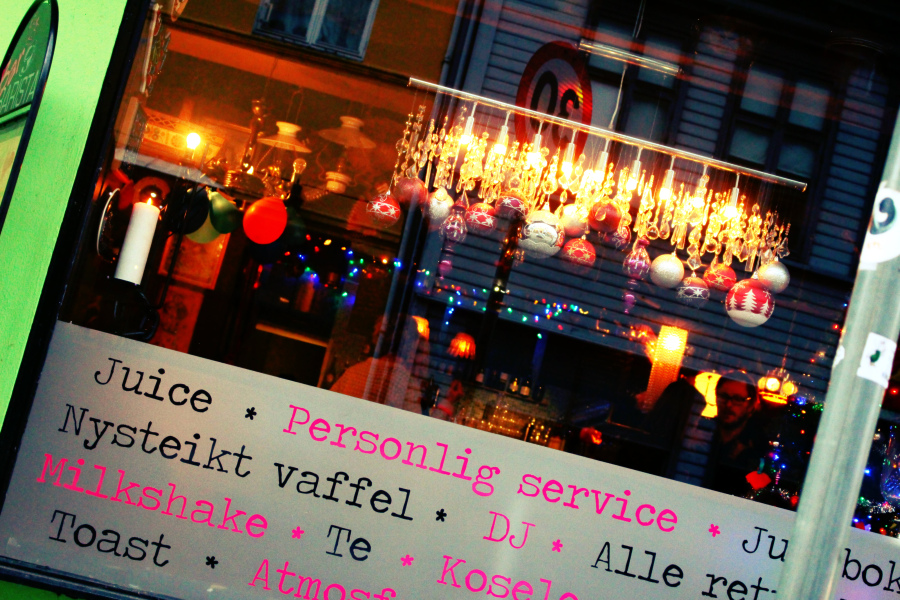 Juice * Personlig service * Ju bok
Nysteikt vaffel * DJ * Alle ret
Milkshake * Te * Kosel
Toast * Atmosf